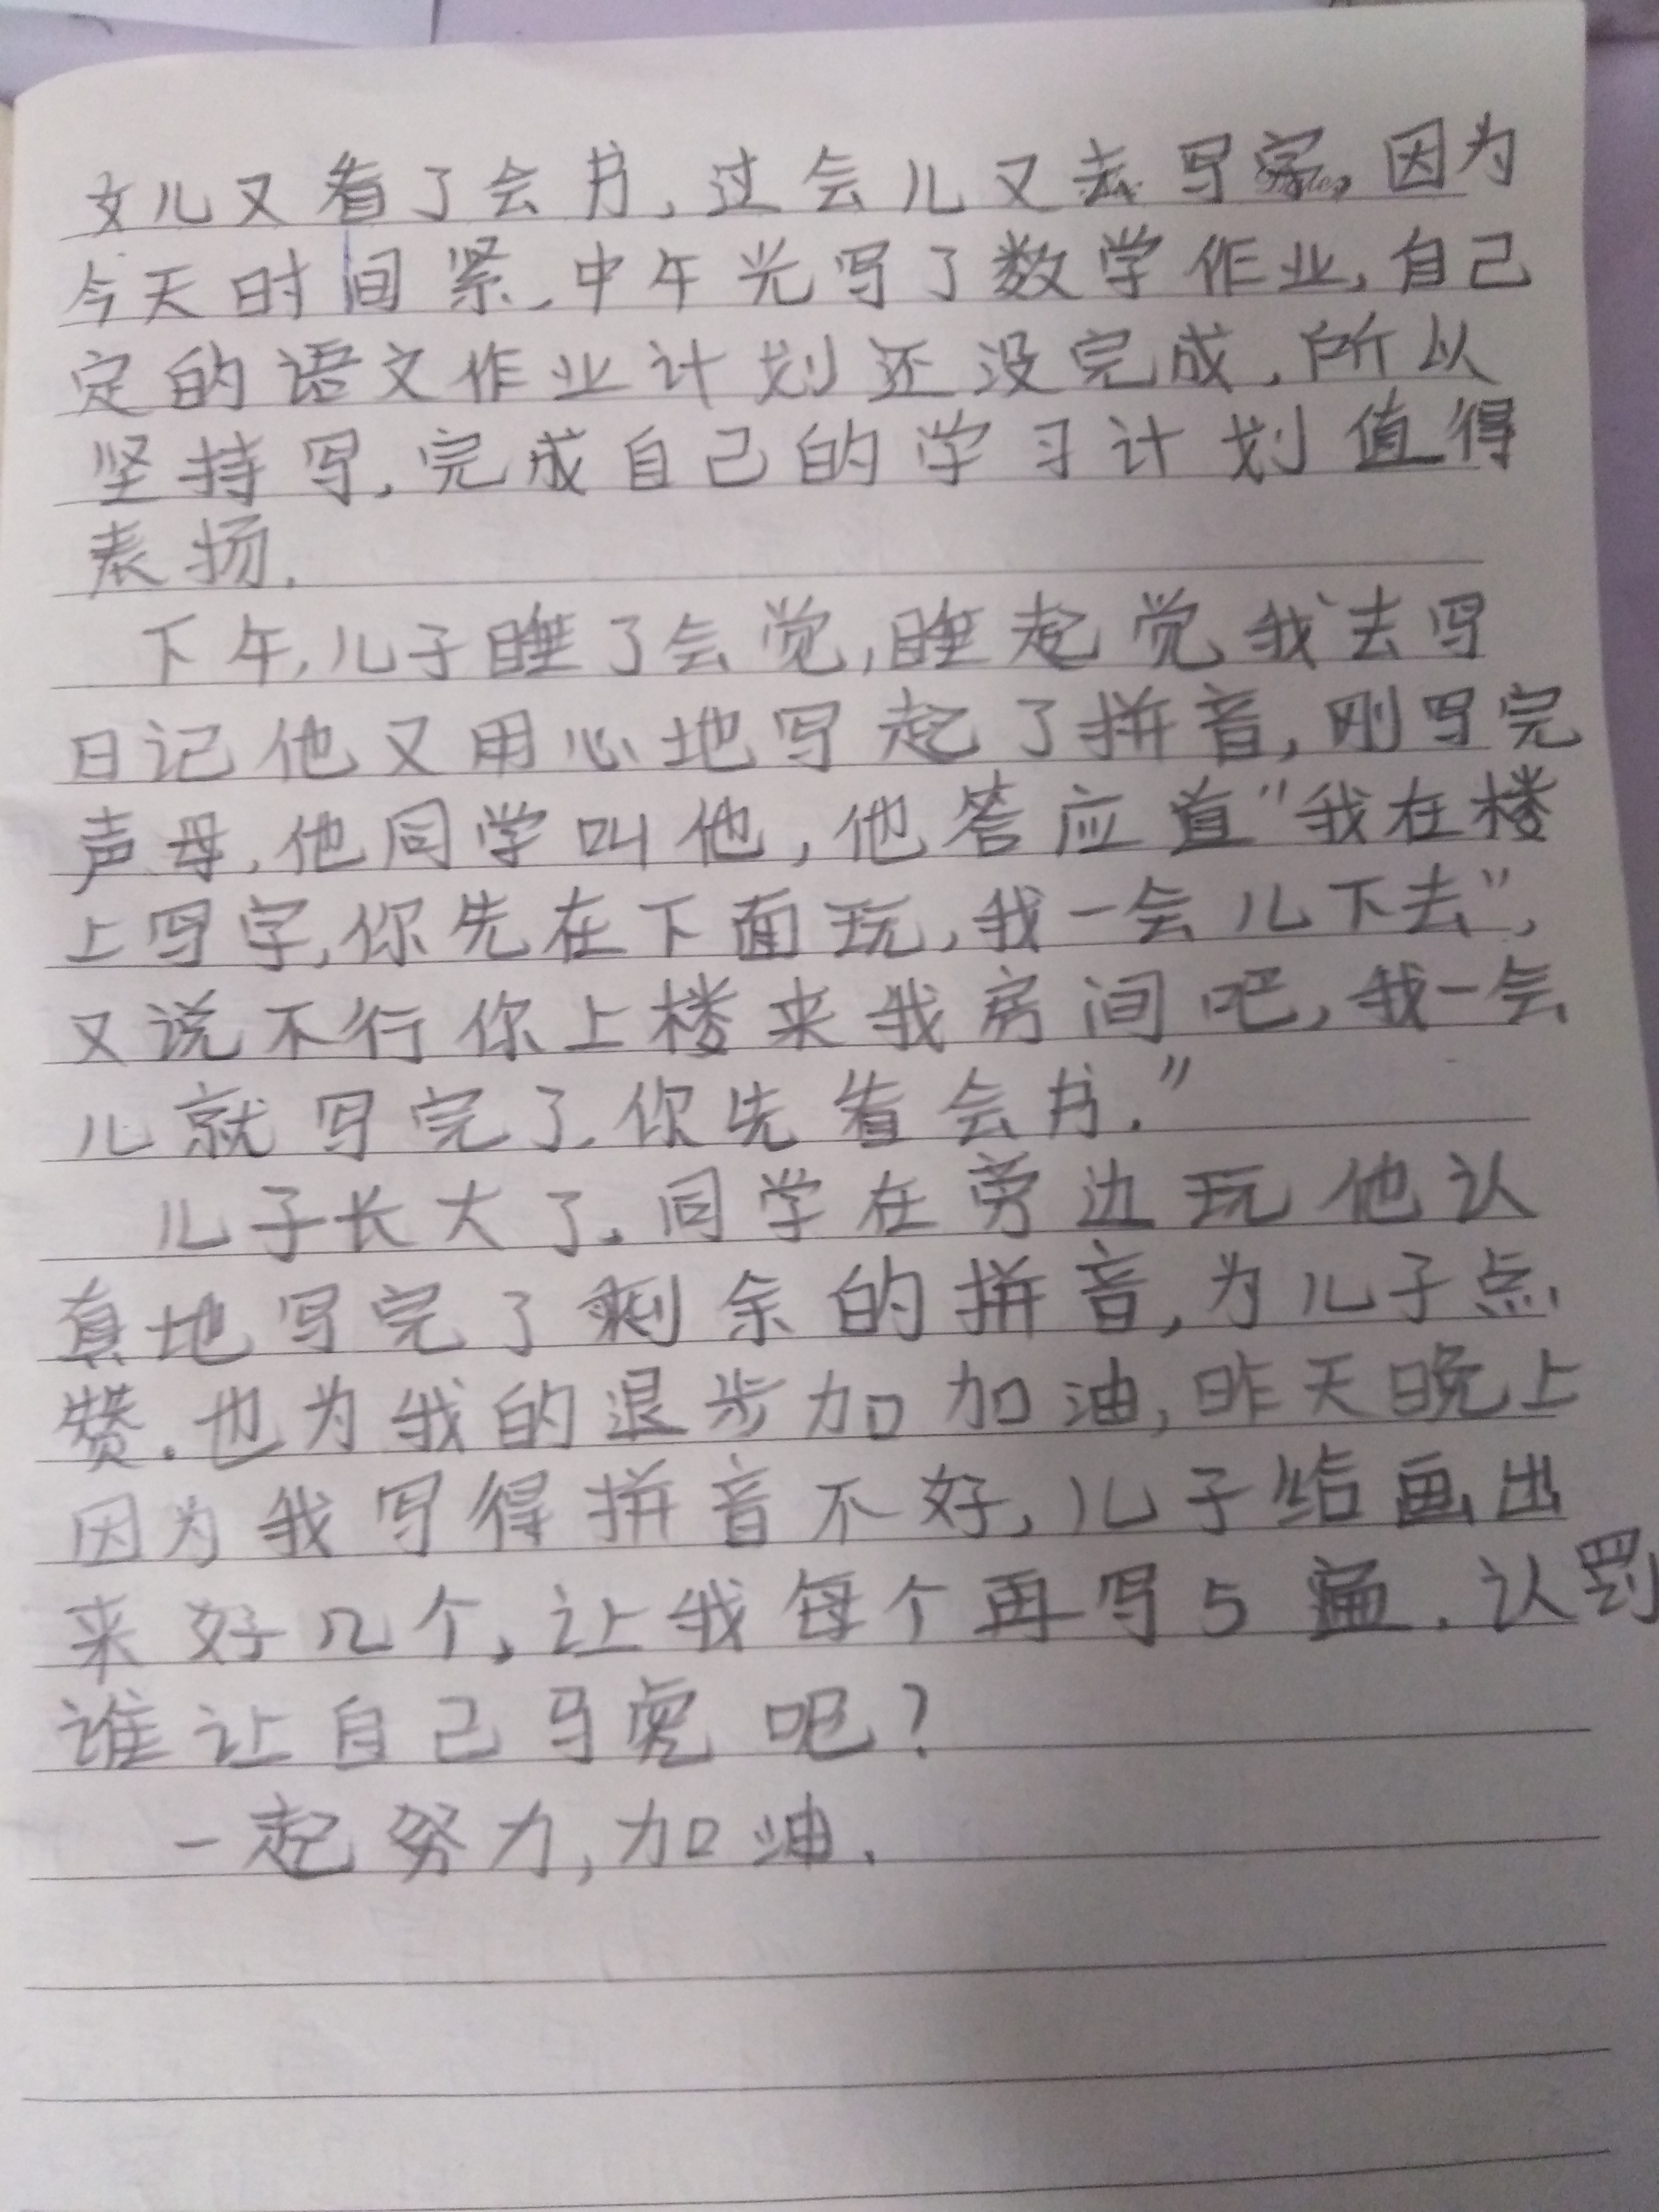 女儿又看了会书,过会儿又去写字,因为
今天时间紧,中午光写了数学作业,自己
定的语文作业计划还没完成,所以
坚持写,完成自己的学习计划值得
表扬.
下午,儿子睡了会觉,睡起觉我去写
日记他又用心地写起了拼音,刚写完
声母,他同学叫他,他答应道"我在楼
上写字,你先在下面玩,我一会儿下去",
又说不行你上楼来我房间吧,我一会
儿就写完了,你先看会书."
儿子长大了.同学在旁边玩他认
真地写完了剩余的拼音,为儿子点
赞.也为我的退步加加油,昨天晚上
因为我写得拼音不好,儿子给画出
来好几个,让我每个再写5遍.认罚
谁让自己马虎吧?
一起努力,加油.